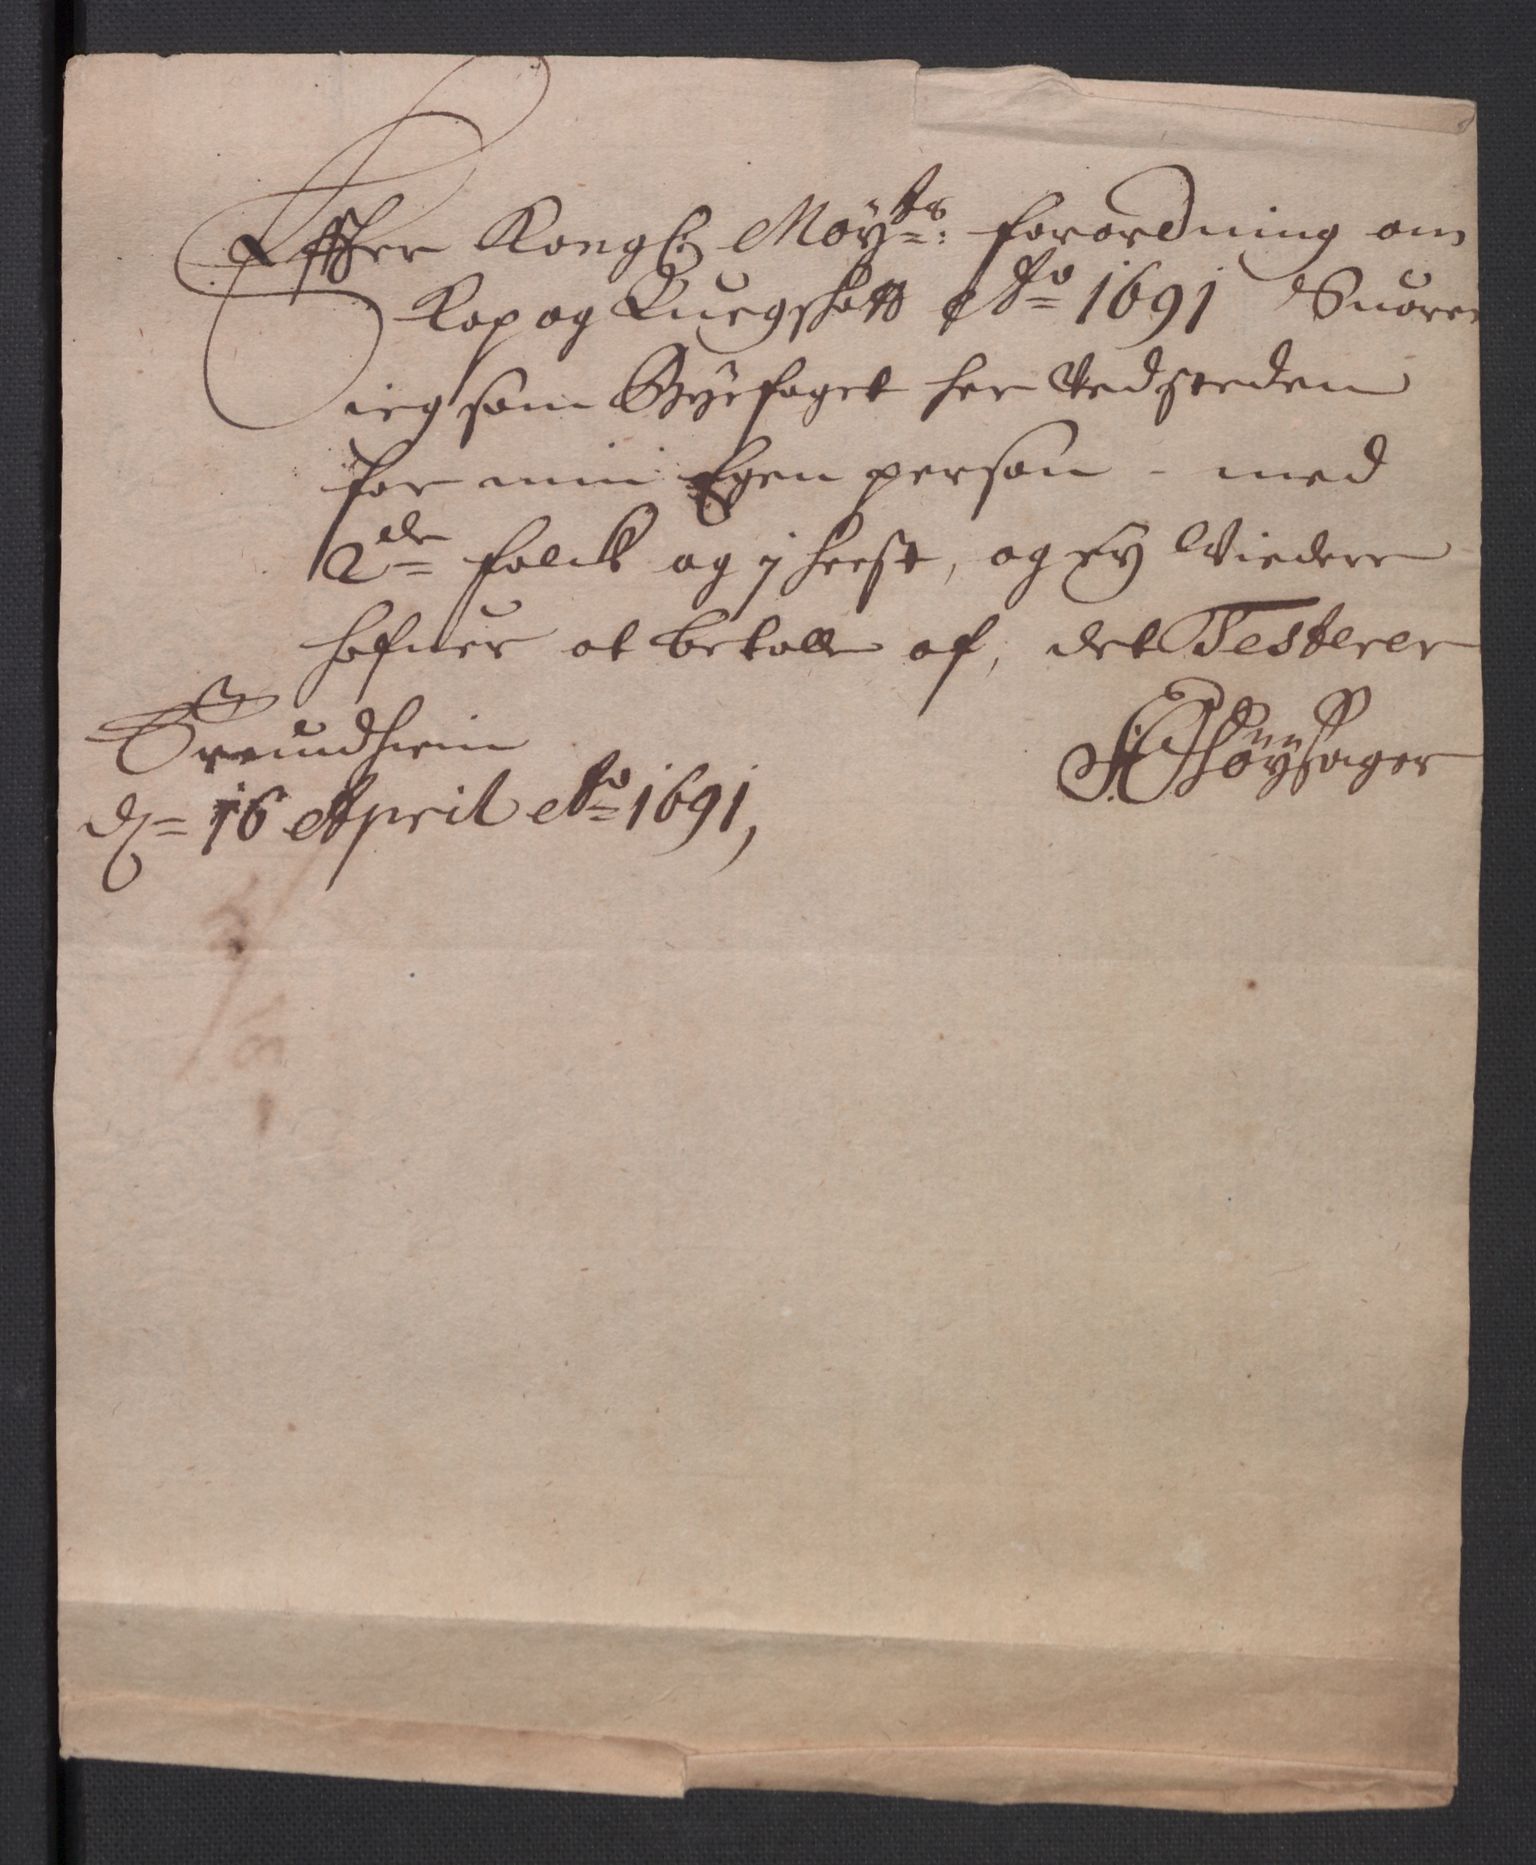 Effter Kongl: Mayts: forordning om
Kop og Quegschatt Ao 1691 Suarer
ieg som Byefoget her Vedsteden
for min Egen person - med
2de folck og j heest, og ey Viedere
hafuer at betalle af, det Testerer
Trundhiem
d= 16 April Ao 1691,